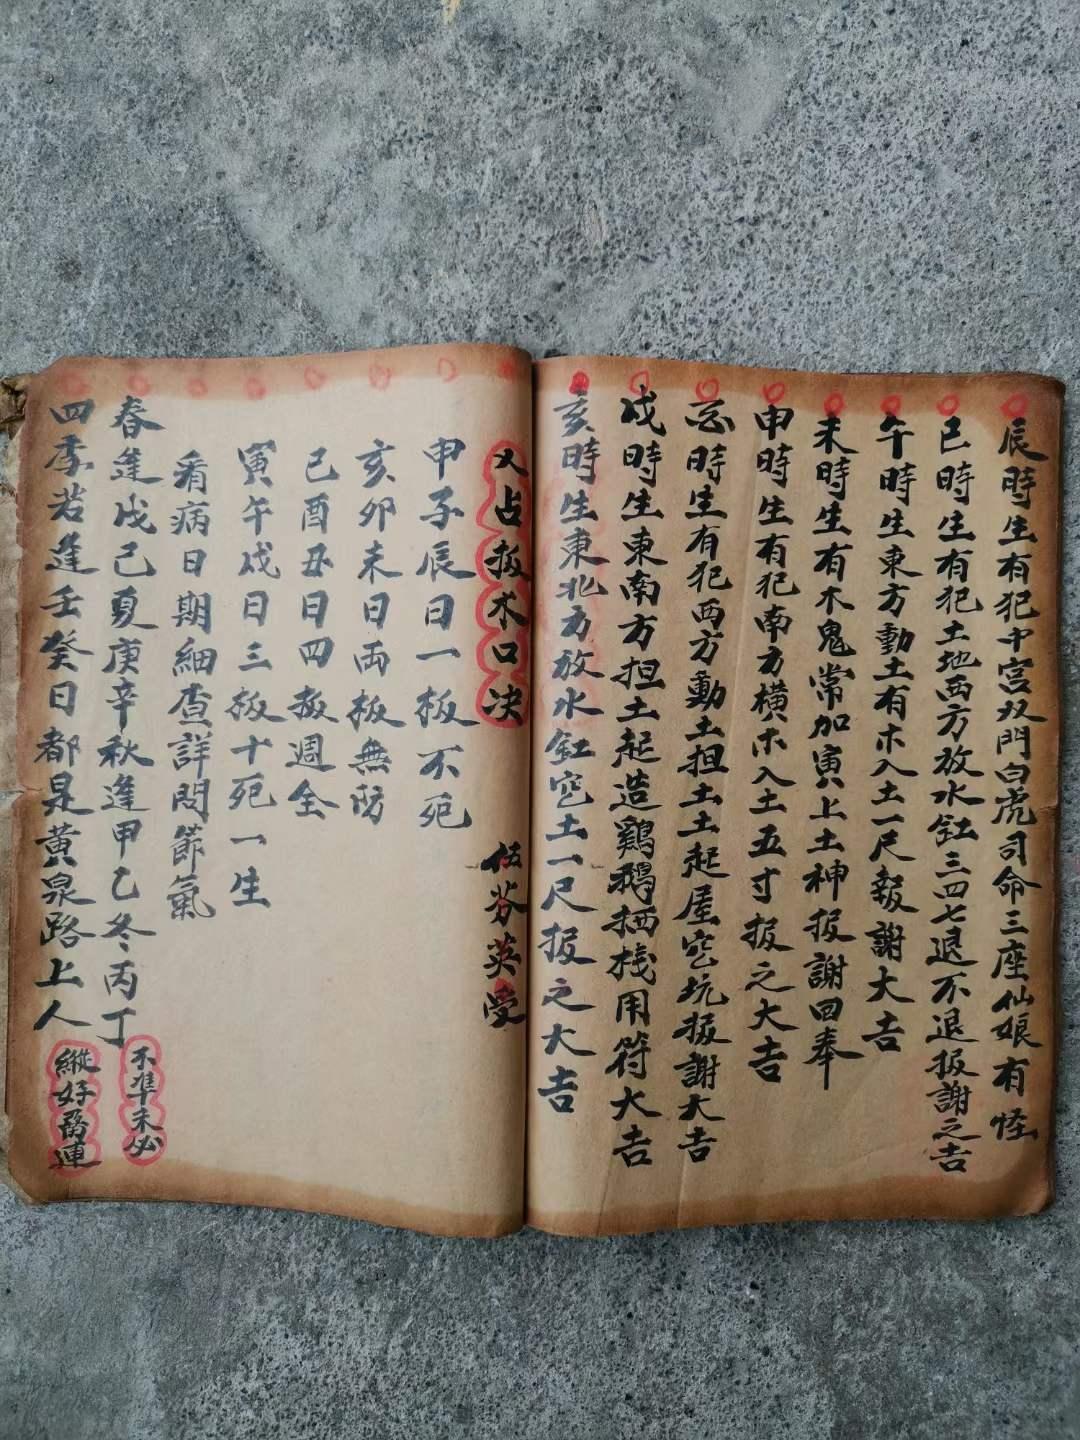 辰時生有犯中宮双門白虎司命三座仙娘有怪
巳時生有犯土地西方放水缸三四七退不退报謝之吉
午時生東方動土有木入土一尺報謝大吉
未時生有木鬼常加寅上土神报謝回奉
申時生有犯南方横木入土五寸报之大吉
時生有犯西方動土担土土起屋空坑报謝大吉
戌時生東南方担土起造鷄鵝栖栈用符大吉
亥時生東北方放水缸空土一尺报之大吉
又占板木口决
伍芬英受
申子辰日一板不死
亥卯未日両板無防
巳酉丑日四板週全
寅午戌日三板十死一生
看病日期細查詳問節氣
春逢戊己夏庚辛秋逢甲乙冬丙丁
不準未必
四季若逢壬癸日都是黄泉路上人
縱好連